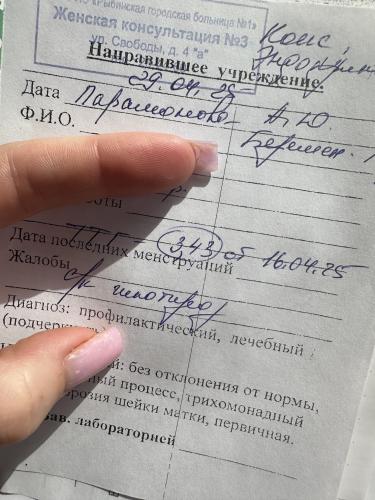 «Рыбинская городская больница №1»
Женская консультация №3
ул. Свободы, д. 4 "а"
Конс.
Эндокрин
Направившее учреждение.
Дата 29.04.25
Ф.И.О. Парамонова А.Ю.
Беремен.
боты
Дата последних менструаций
ТТГ 3,43 от 16.04.25
Жалобы
с/к гипотиреоз
Диагноз: профилактический, лечебный
(подчеркнуть)
: без отклонения от нормы,
ный процесс, трихомонадный
розия шейки матки, первичная.
Зав. лабораторией